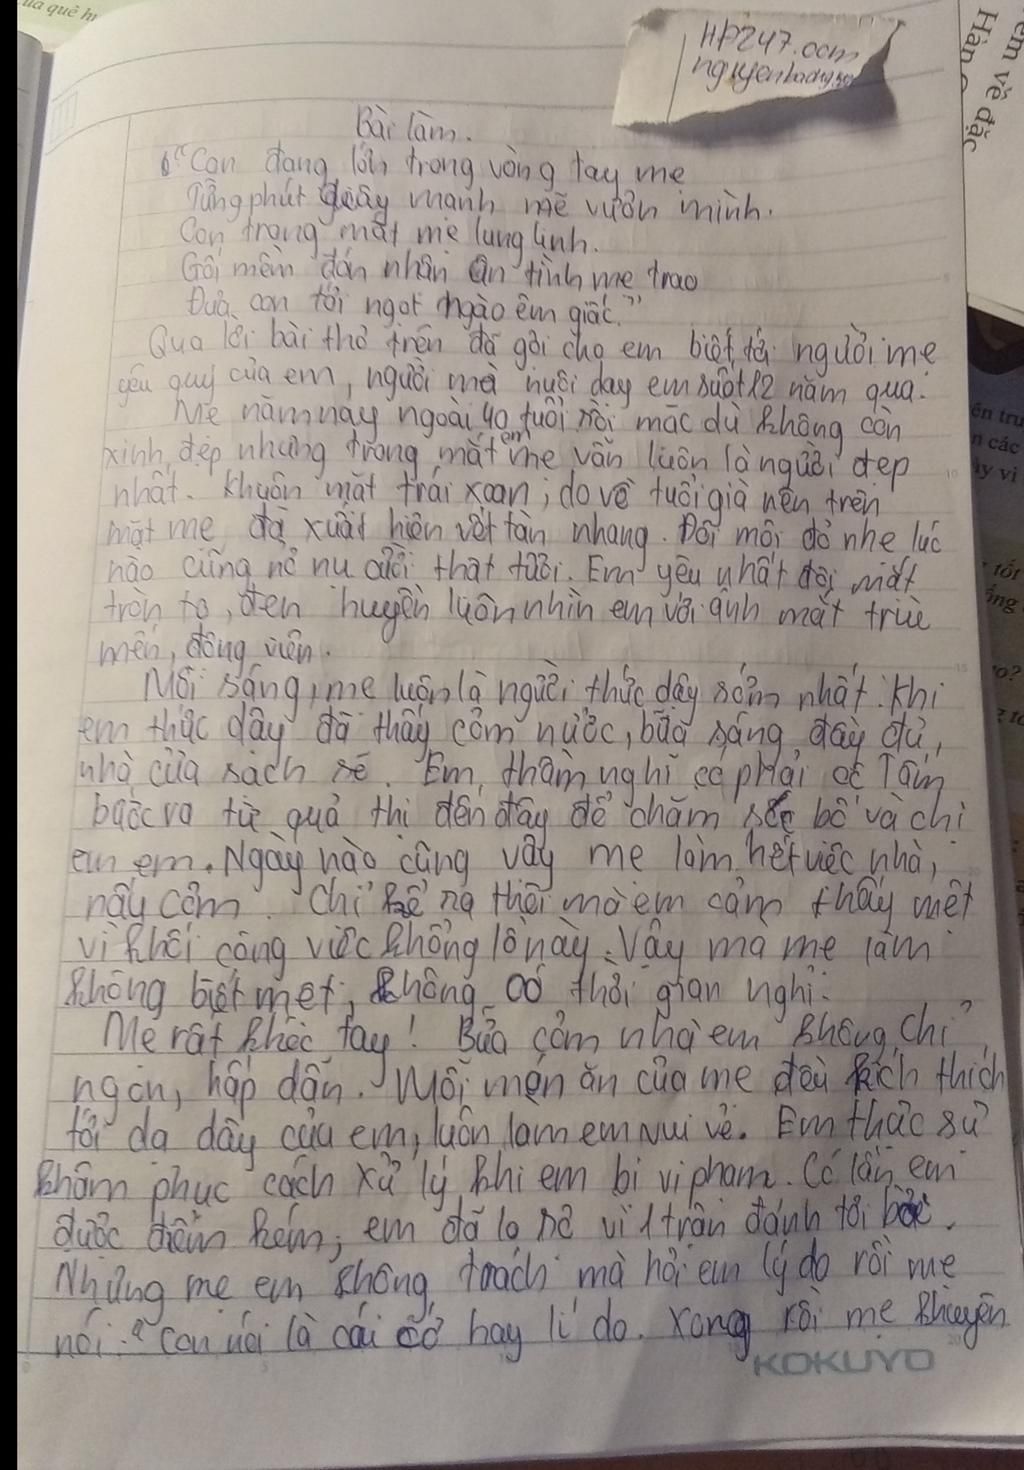 ủa quê hư
HP247.com
nguyenhadyy
Hàn
em về đặc
Bài làm.
"Con đang lớn trong vòng tay mẹ
Từng phút giây mạnh mẽ vươn mình.
Con trong mắt mẹ lung linh.
Gối mềm đón nhận ân tình mẹ trao
Đưa con tới ngọt ngào êm giấc."
Qua lời bài thơ trên đã gợi cho em biết tới người mẹ
yêu quý của em, người mà nuôi dạy em suốt 12 năm qua.
Mẹ năm nay ngoài 40 tuổi rồi mặc dù không còn
xinh đẹp nhưng trong mắt em mẹ vẫn luôn là người đẹp
nhất. Khuôn mặt trái xoan, do về tuổi già nên trên
mặt mẹ đã xuất hiện vết tàn nhang. Đôi môi đỏ nhẹ lúc
nào cũng nở nụ cười thật tươi. Em yêu nhất đôi mắt
tròn to, đen huyền luôn nhìn em với ánh mắt trìu
mến, động viên.
Mỗi sáng, mẹ luôn là người thức dậy sớm nhất. Khi
em thức dậy đã thấy cơm nước, bữa sáng đầy đủ,
nhà cửa sạch sẽ. Em thầm nghĩ có phải cô Tấm
bước ra từ quả thị đến đây để chăm sóc bố và chị
em em. Ngày nào cũng vậy mẹ làm hết việc nhà,
nấu cơm. Chỉ kể ra thôi mà em cảm thấy mệt
vì khối công việc khổng lồ này. Vậy mà mẹ làm
không biết mệt, không có thời gian nghỉ.
Mẹ rất khéo tay! Bữa cơm nhà em không chỉ
ngon, hấp dẫn. Mỗi món ăn của mẹ đều kích thích
tới dạ dày của em, luôn làm em vui vẻ. Em thực sự
khâm phục cách xử lý khi em bị vi phạm. Có lần em
được điểm kém, em đã lo sợ vì 1 trận đánh tới bóc.
Nhưng mẹ em không trách mà hỏi em lý do rồi mẹ
nói: "Con nói là cái cớ hay lí do. Xong rồi mẹ khuyên
KOKUYO
ên tru
n các
ày vì
tốt
o?